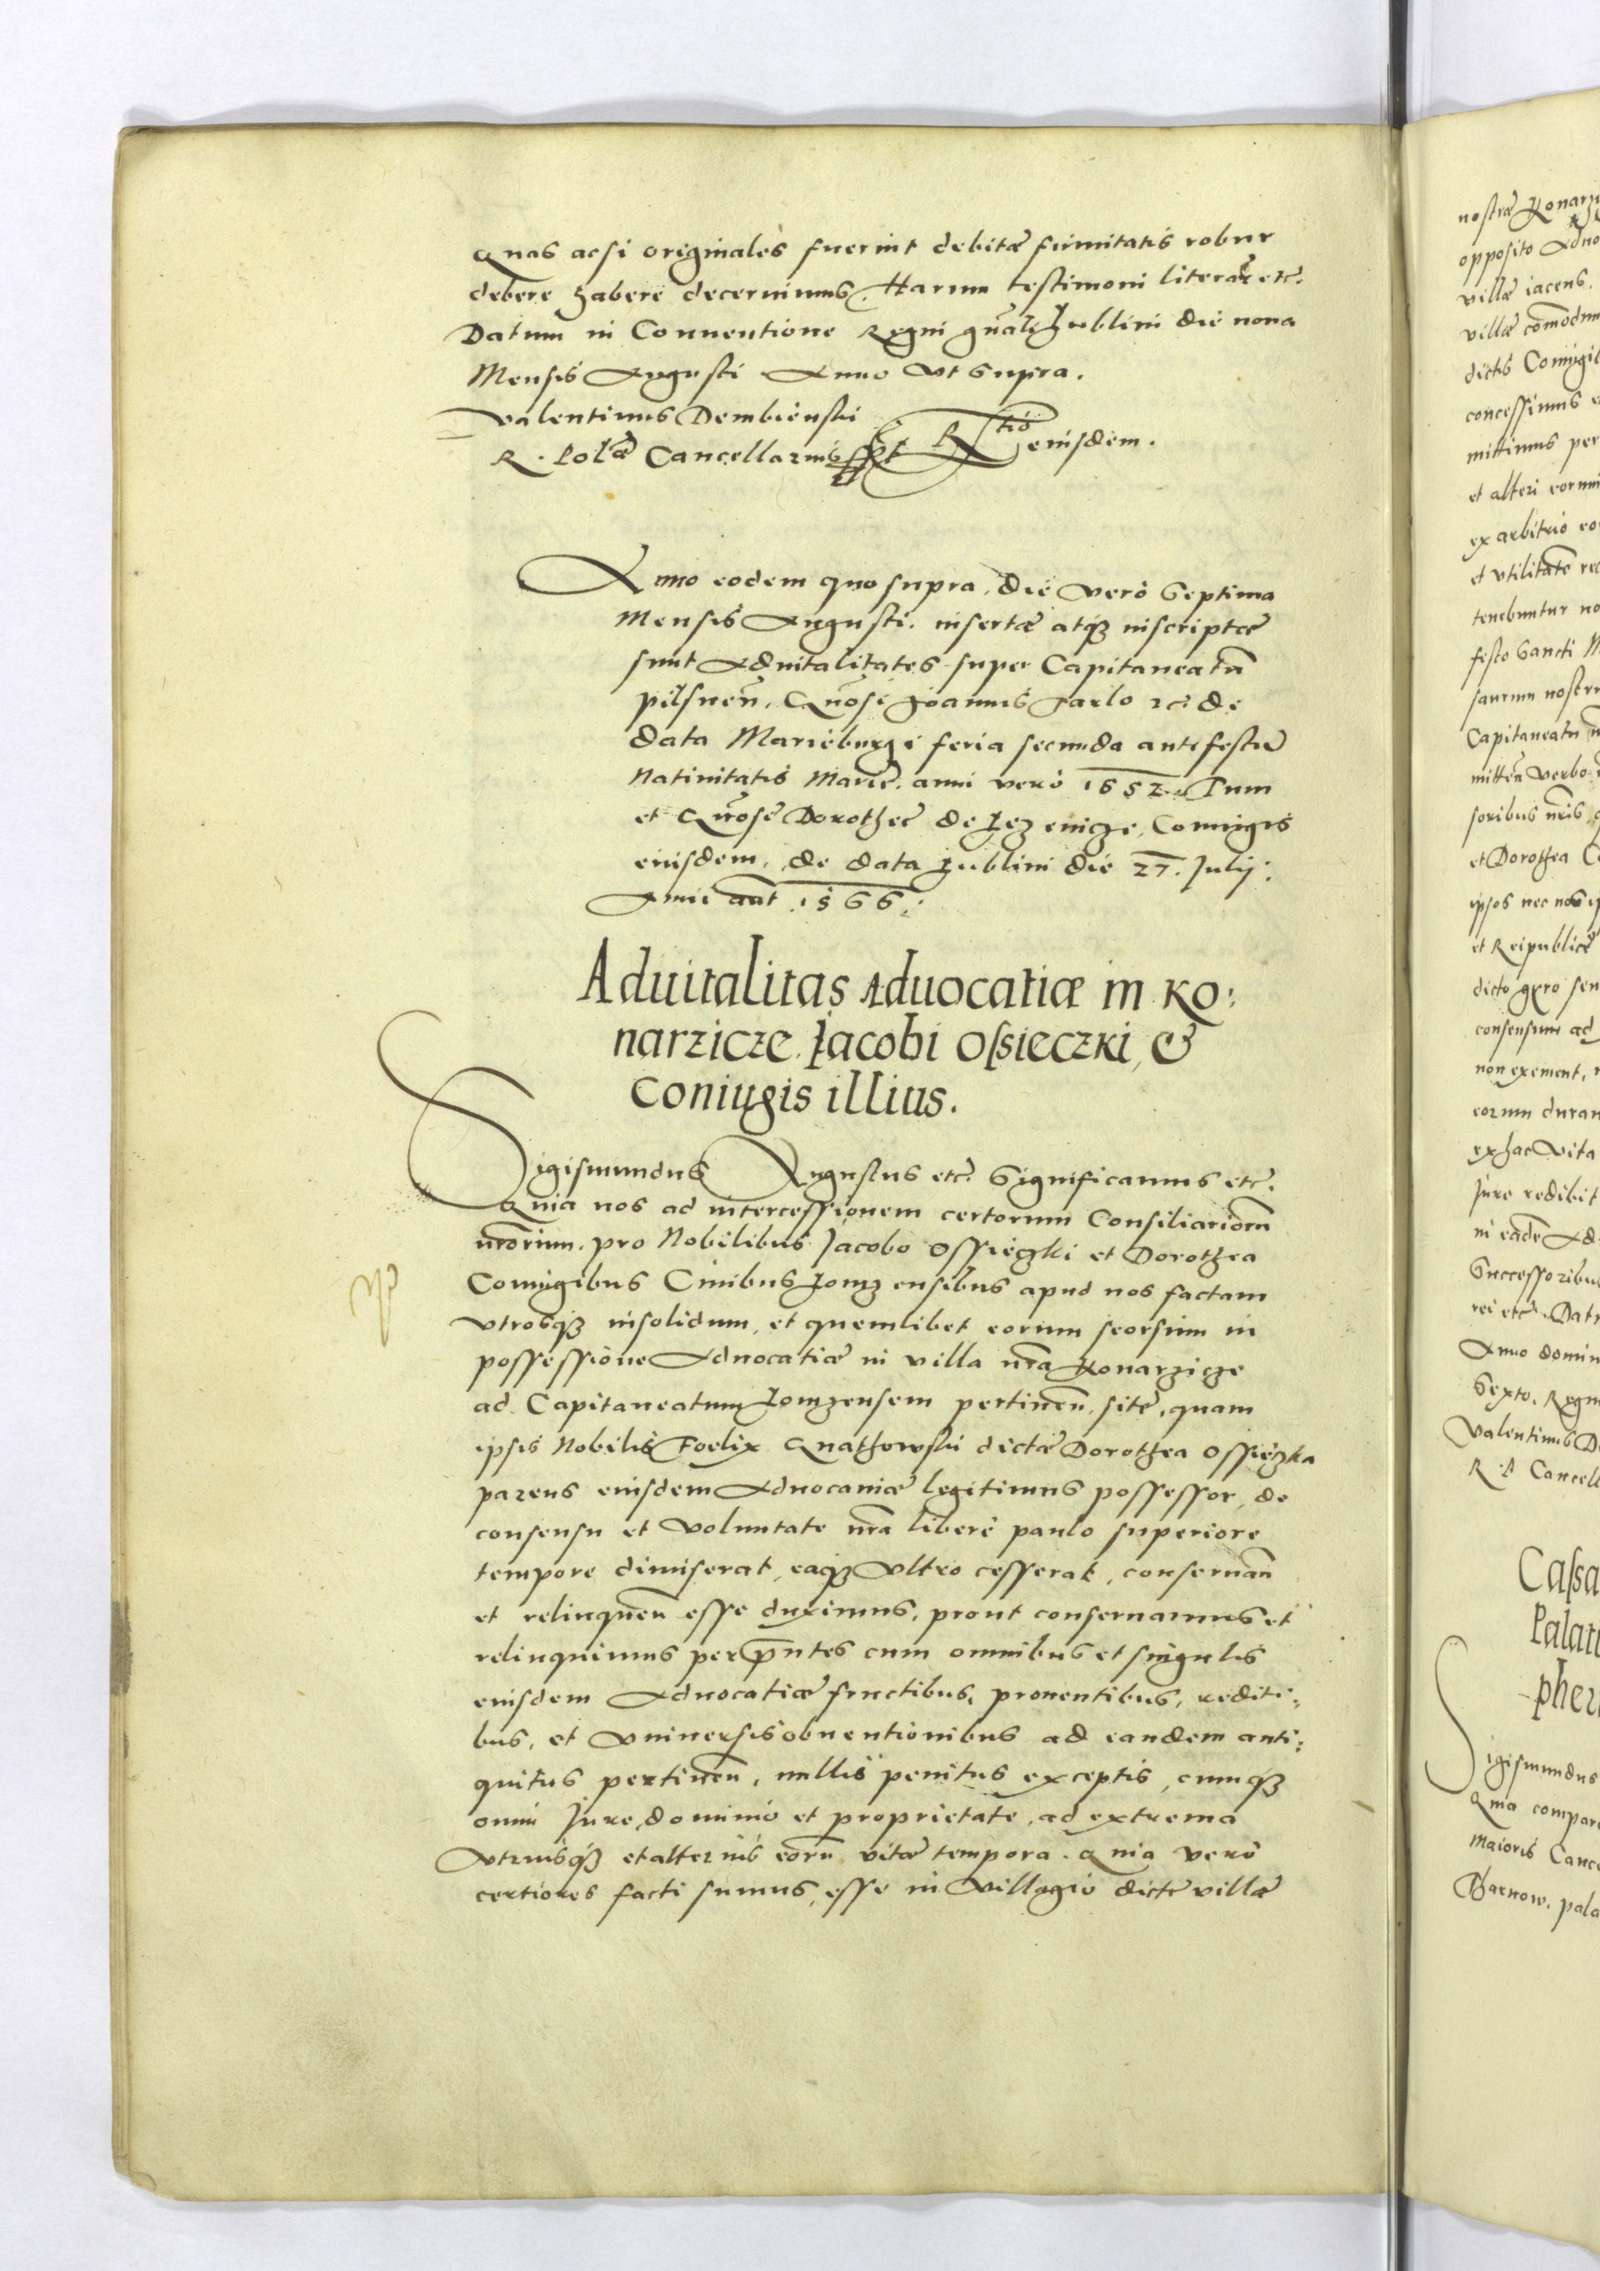 Quas acsi originales fuerint debitæ firmitatis robur
debere habere decernimus. Harum testimoni literar̃ etc̃.
Datum in Conuentione Regni gñali Lublini die nona
Mensis Augusti Anno Vt supra.
Valentinus Dembienski
R. Pol̃æ Cancellarius sspt R̃tio eiusdem.
Anno eodem quo supra, die vero Septima
Mensis Augusti. insertæ atq3 inscriptæ
sunt Aduitalitates super Capitaneatũ
pilsneñ, Gñosi Joannis Jarlo &c̃ de
data Marieburgi feria secunda ante festũ
Natiuitatis Marie. anni vero 1552. Tum
et Gñose Dorothee de Lez enicze, Coniugis
eiusdem, de data Lublini die 27. Julij.
Anni aũt 1566.
Aduitalitas Aduocatiæ in Ko:
narzicze Jacobi Ossieczki, &
Coniugis illius.
Sigismundus Augustus etc̃. Significamus etc̃.
Quia nos ad intercessionem certorum Consiliariorũ
ñrorum, pro Nobilibus Jacobo Ossieczki et Dorothea
Coniugibus Ciuibus Lomz ensibus apud nos factam
vtrosq3 insolidum, et quemlibet eorum seorsum in
possessione Aduocatiæ in villa ñra Konarzicze
ad Capitaneatum Lomzensem pertineñ, site, quam
ipsis Nobilis Foelix Gnathowski dictæ Dorothea Ossieczka
parens eiusdem Aduocaniæ legitimus possessor, de
consensu et voluntate ñra libere paulo superiore
tempore dimiserat, eaq3 vltro cesserat, conseruañ
et relinqueñ esse duximus, prout conseruamus et
relinquimus per p̃ntes cum omnibus et singulis
eiusdem Aduocatiæ fructibus, prouentibus, rediti:
bus, et vniuersis obuentionibus ad eandem anti:
quitus pertineñ, nullis penitus exceptis, cumq3
omni Jure, dominio et proprietate, ad extrema
vtriusq3 et alterius eorũ vitæ tempora. Quia vero
certiores facti sumus, esse in Villagio dicte villæ
nostræ Konarzi
opposito Aduo
villæ iacens.
villæ com̃odum
dictis Coniugib
concessimus e
mittimus per
et alteri eorum
ex arbitrio eo
et vtilitatẽ rec
tenebuntur no
festo Sancti M
saurum nostru
Capitaneatu
mitteñ verbo
soribus ñris
et Dorothea Co
ipsos nec nos ip
et Reipublicæ
dicto gero sen
consensum ad
non exement,
eorum duran
ex hac vita
Jure redibit
in eadẽ Ad
Successoribus
rei etc̃. Datu
Anno domin
Sexto, Regn
Valentinus De
R. P Cancell
Cassa
Palati
pheri
Sigismundus
Quia compar
Maioris Cance
Tharnow, pala